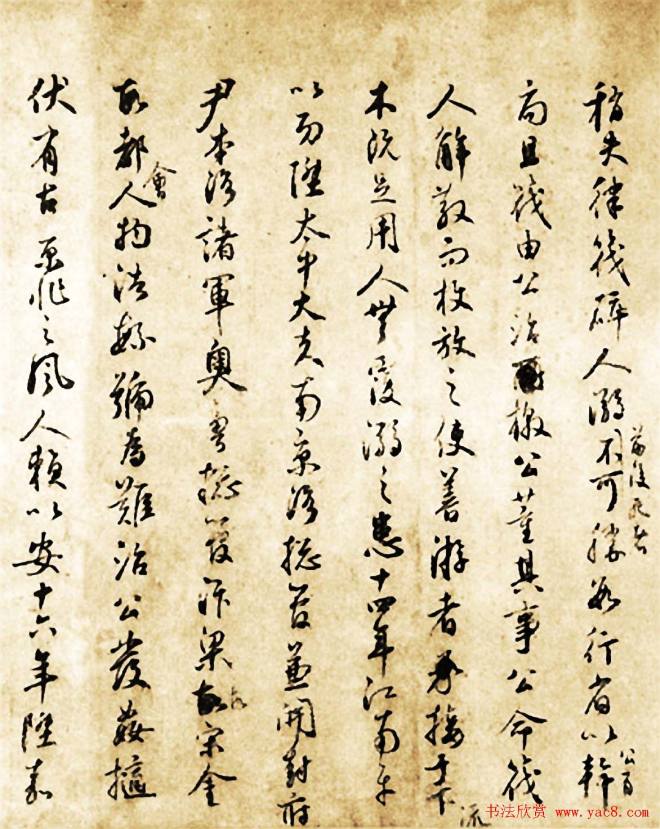 稍失律筏碎人溺不可勝數行省以幹
前後死者
公有
局且筏由公治檄公董其事公命筏
人解散而投放之使善游者承接于下
流
木既足用人無覆溺之患十四年江南平
以功陞太中大夫南京路總管兼開封府
尹本路諸軍奧魯總管汴梁故宋金
故都人物浩繁號為難治公發姦擿
會
伏有古之風人賴以安十六年陞嘉
书法欣赏 www.yac8.com